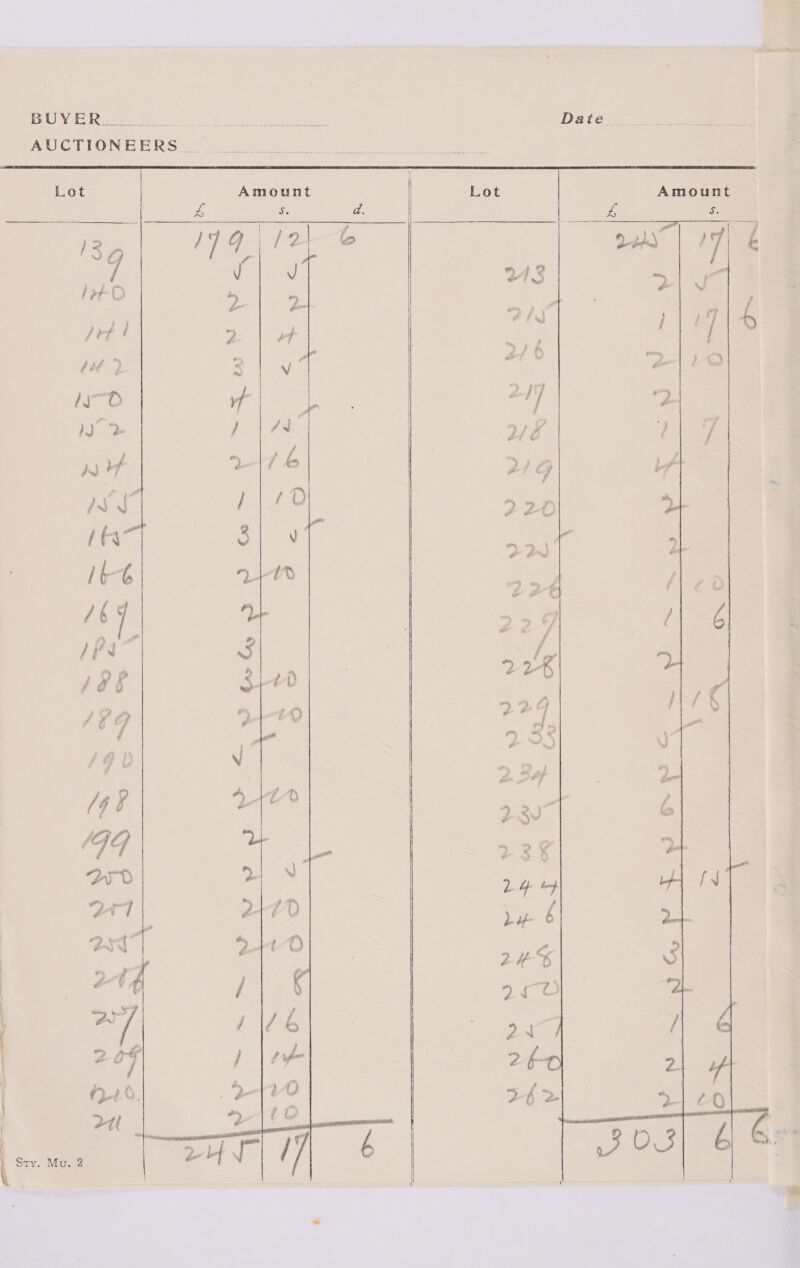 BUYER Date
AUCTIONEERS
Lot Amount Lot Amount
£ s. d. £ s.
179 12 6 245 17 6
139 5 5 213 2 5
140 2 2 215 1 17 6
141 2 4 216 2 10
142 3 5 217 2
150 4 218 1 7
152 1 15 219 4
154 2 16 220 2
155 1 10 225 2
165 3 5 226 1 10
166 2 10 227 1 6
167 2 228 2
185 3 229 1 18
188 3 10 233 5
189 2 10 234 2
190 5 235 6
198 2 10 238 2
199 2 244 4 15
200 2 5 246 2
201 2 10 248 3
205 2 10 250 2
206 1 8 257 1 6
207 1 16 260 2 4
209 1 14 262 2 10
210 2 10
211 2 10
245 17 6 303 6 6
Sty. Mu. 2